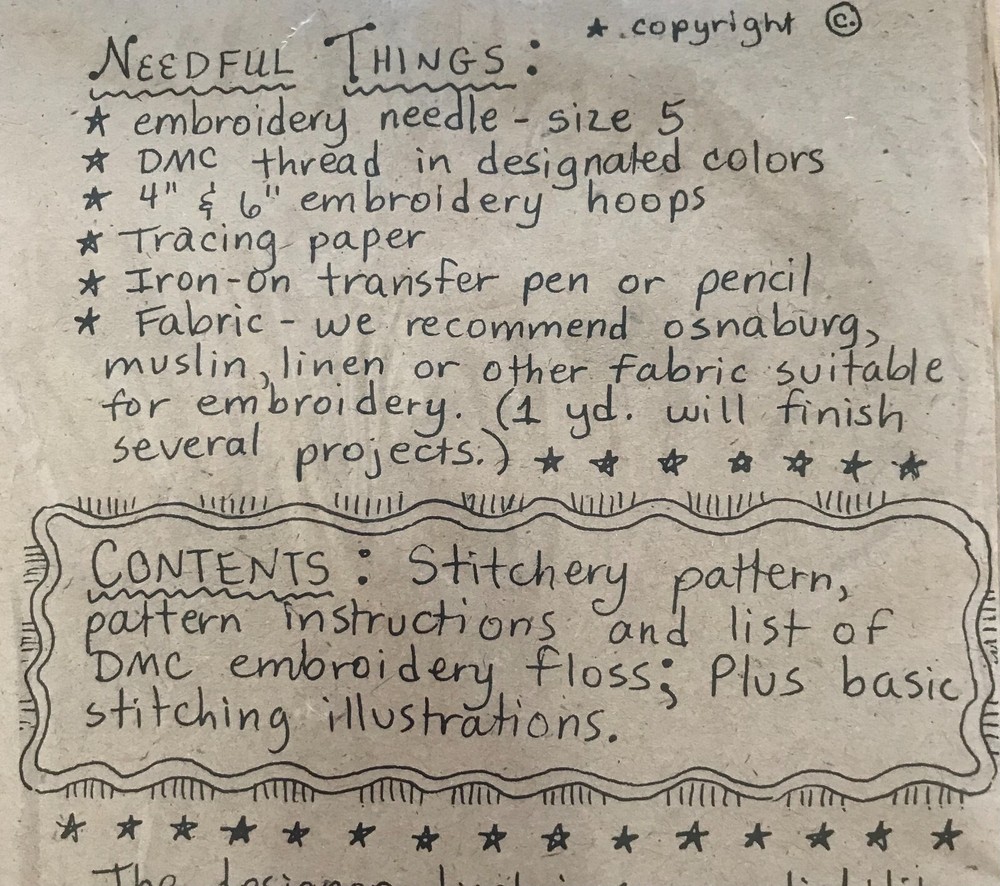 ★ .copyright ©
NEEDFUL THINGS:
★ embroidery needle - size 5
★ DMC thread in designated colors
★ 4" & 6" embroidery hoops
★ Tracing paper
★ Iron-on transfer pen or pencil
★ Fabric - we recommend osnaburg,
muslin, linen or other fabric suitable
for embroidery. (1 yd. will finish
several projects.) ★ ★ ★ ★ ★ ★ ★
CONTENTS: Stitchery pattern,
pattern instructions and list of
DMC embroidery floss; Plus basic
stitching illustrations.
★ ★ ★ ★ ★ ★ ★ ★ ★ ★ ★ ★ ★ ★ ★
The designer